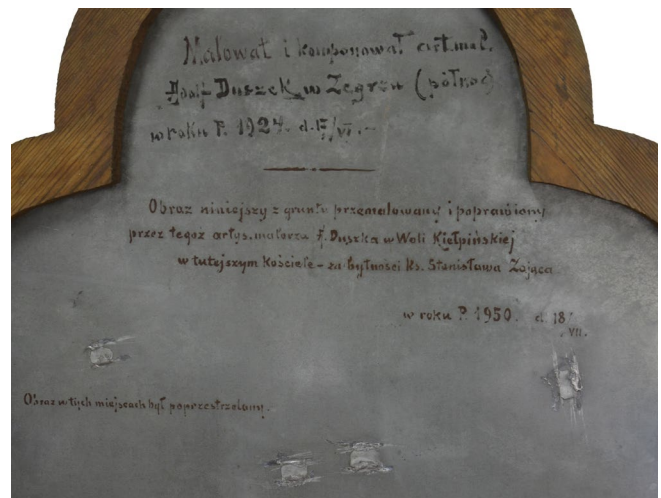 Malował i komponował art. mal.
Adolf Duszek w Zegrzu (północ)
w roku P. 1924. d. 17/VI.-
Obraz niniejszy z gruntu przemalowany i poprawiony
przez tegoż artys. malarza A. Duszka w Woli Kiełpińskiej
w tutejszym Kościele - za bytności ks. Stanisława Zająca
w roku P. 1950. d. 18/VII.
Obraz w tych miejscach był poprzestrzelany.